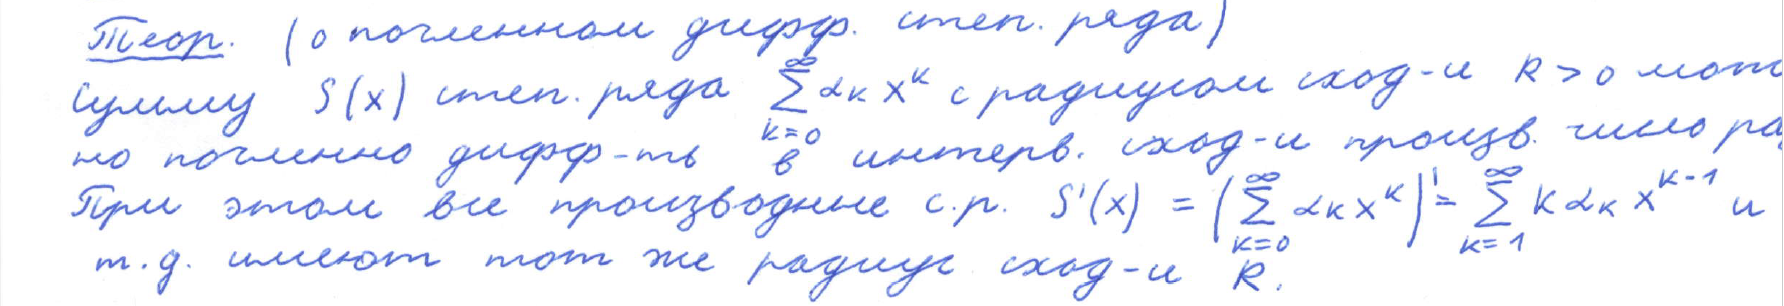 Теор. (о почленном дифф. степ. ряда)
Сумму S(x) степ. ряда \sum_{k=0}^{\infty} α_k x^k с радиусом сход-и R > 0 мож
но почленно дифф-ть в интерв. сход-и произв. число ра
При этом все производные с.р. S'(x) = (\sum_{k=0}^{\infty} α_k x^k)' = \sum_{k=1}^{\infty} k α_k x^{k-1} и
т.д. имеют тот же радиус сход-и R.